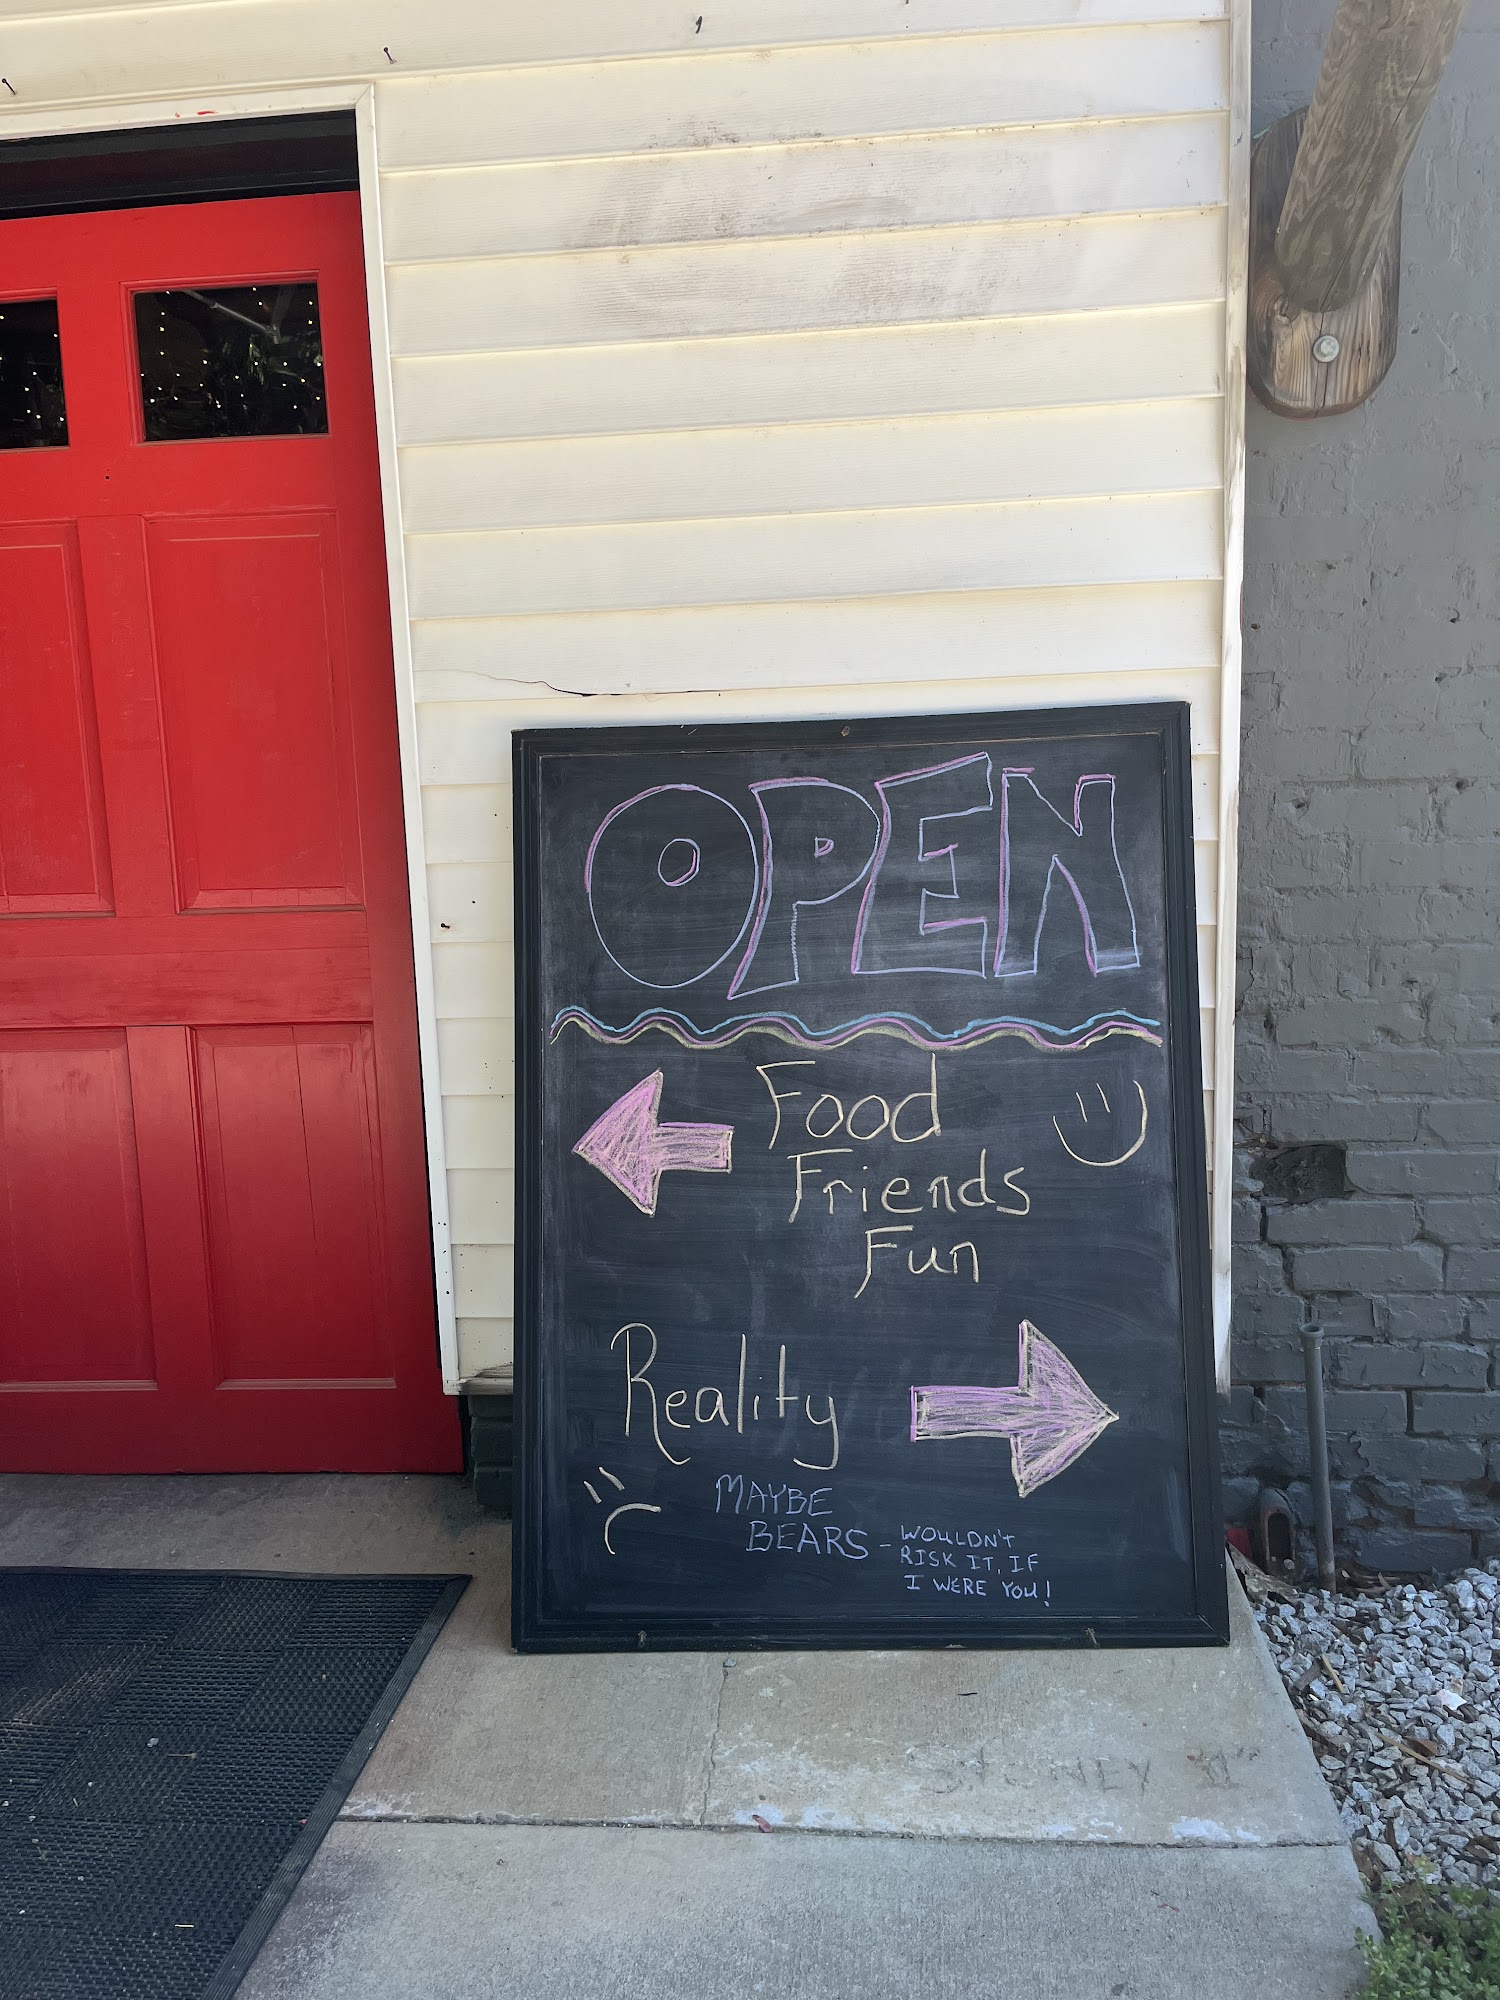 OPEN
Food
Friends
Fun
Reality
MAYBE
BEARS - WOULDN'T
RISK IT, IF
I WERE YOU!